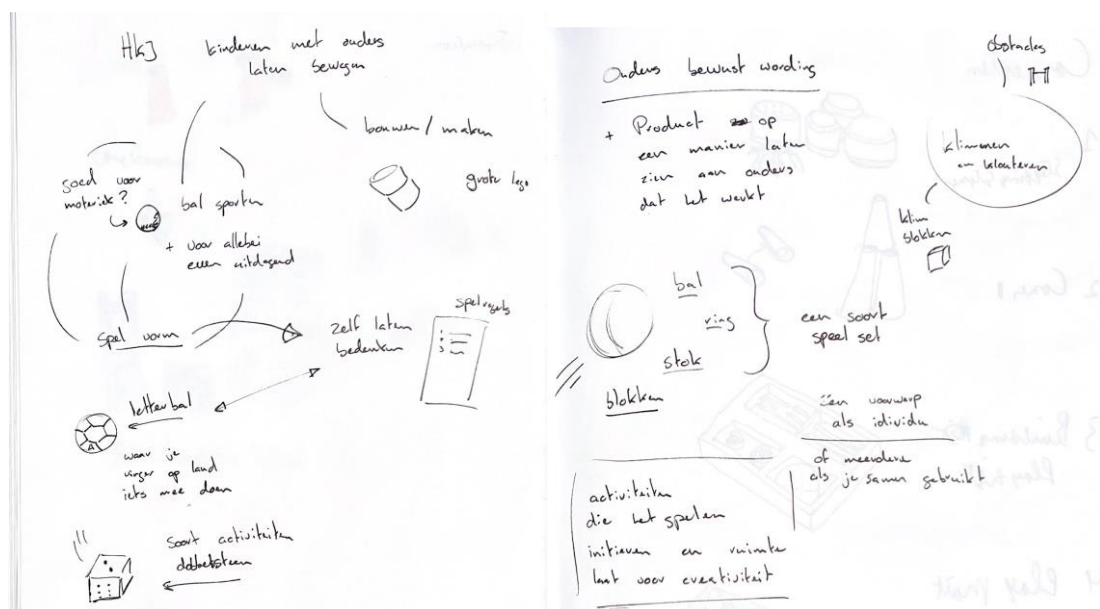 HKJ
kinderen met ouders
laten bewegen
bouwen / maken
grote lego
goed voor
motoriek?
bal sporten
+ voor allebei
even uitdagend
spel vorm
zelf laten
bedenken
spelregels
letterbal
A
waar je
vinger op land
iets mee doen
soort activiteiten
dobbelsteen
Ouders bewust wording
+ Product op
een manier laten
zien aan ouders
dat het werkt
obstacles
klimmen
en klauteren
klim
blokken
bal
ring
stok
een soort
speel set
blokken
Een voorwerp
als idividu
of meerdere
als je samen gebruikt
activiteiten
die het spelen
initieren en ruimte
laat voor creativiteit